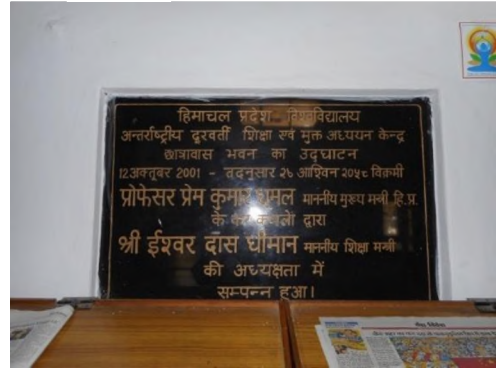 हिमाचल प्रदेश विश्वविद्यालय
अन्तर्राष्ट्रीय दूरवर्ती शिक्षा एवं मुक्त अध्ययन केन्द्र
छात्रावास भवन का उद्घाटन
12 अक्तूबर 2001 - तदनुसार २७ आश्विन २०५८ विक्रमी
प्रोफेसर प्रेम कुमार धूमल माननीय मुख्य मन्त्री हि.प्र.
के कर कमलों द्वारा
श्री ईश्वर दास धीमान माननीय शिक्षा मन्त्री
की अध्यक्षता में
सम्पन्न हुआ।